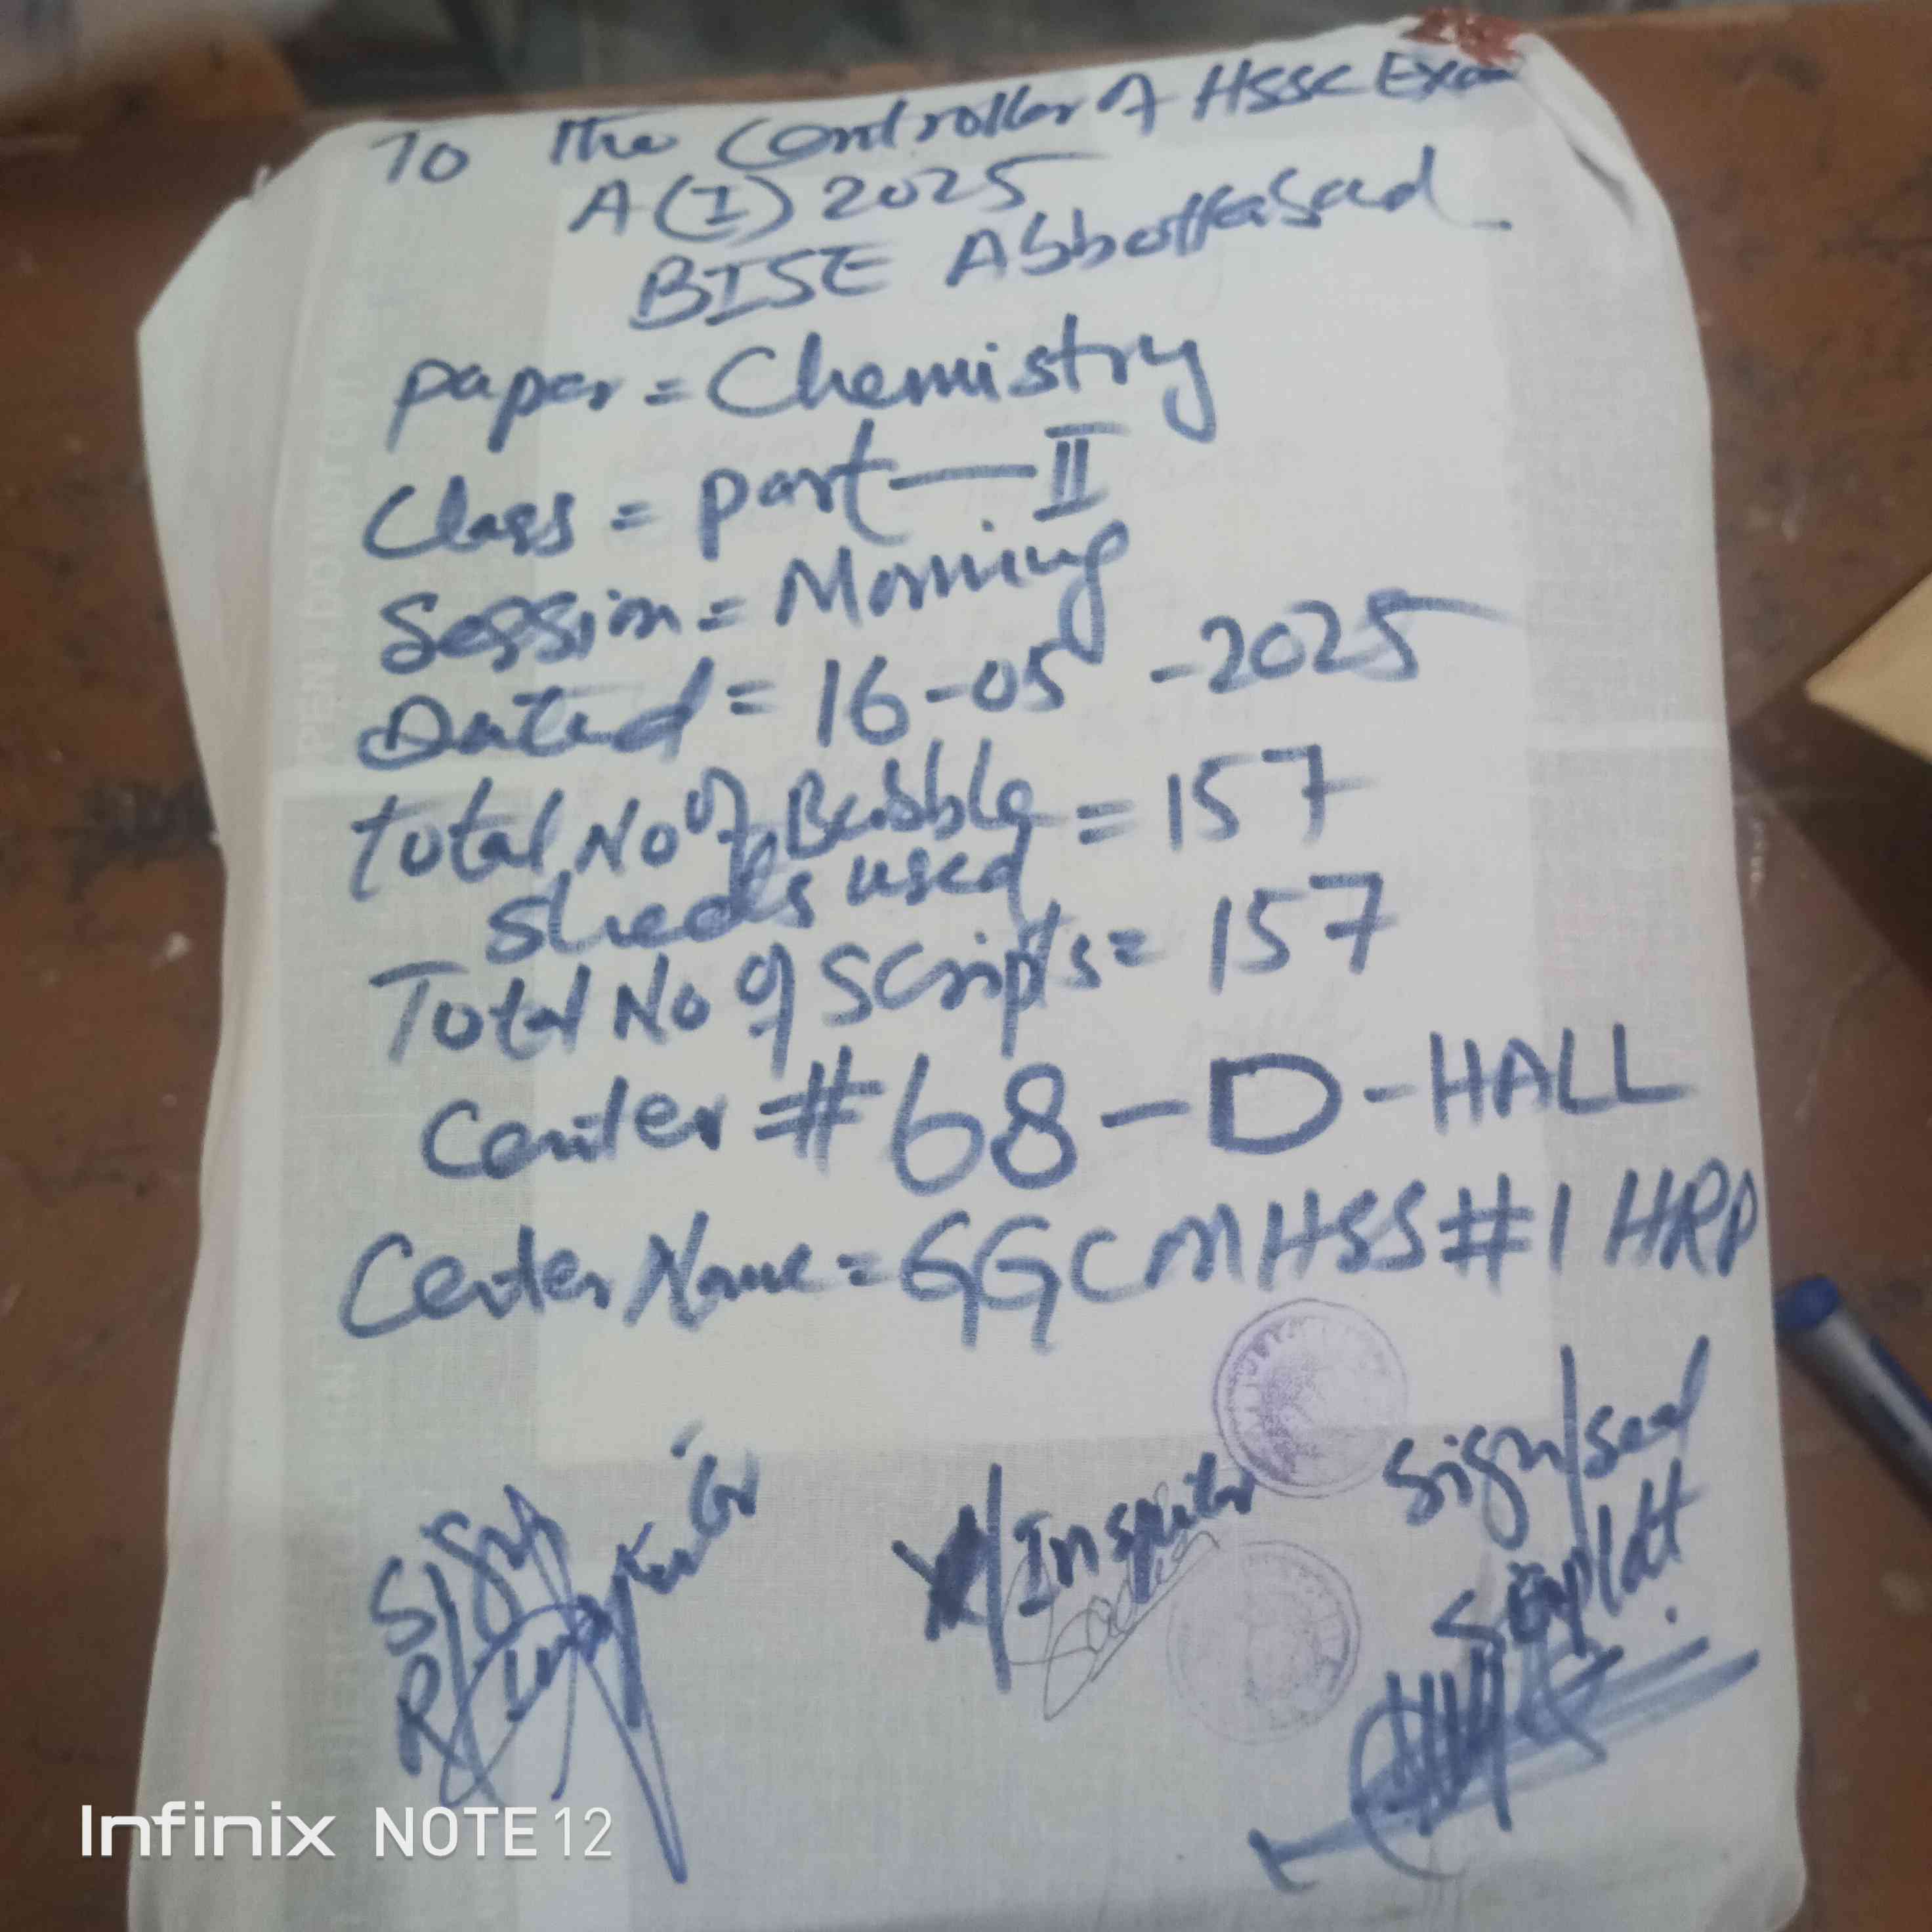 To The Controller of HSSC Exam
A(I) 2025
BISE Abbottabad
paper = Chemistry
Class = part—II
Session = Morning
Dated = 16-05-2025
total No of Bubble = 157
sheets used
Total No of Scripts = 157
Center # 68-D-HALL
Center Name = GGCMHSS#1 HRP
Sign
R/
/Inspector
Sign/seal
Infinix NOTE 12